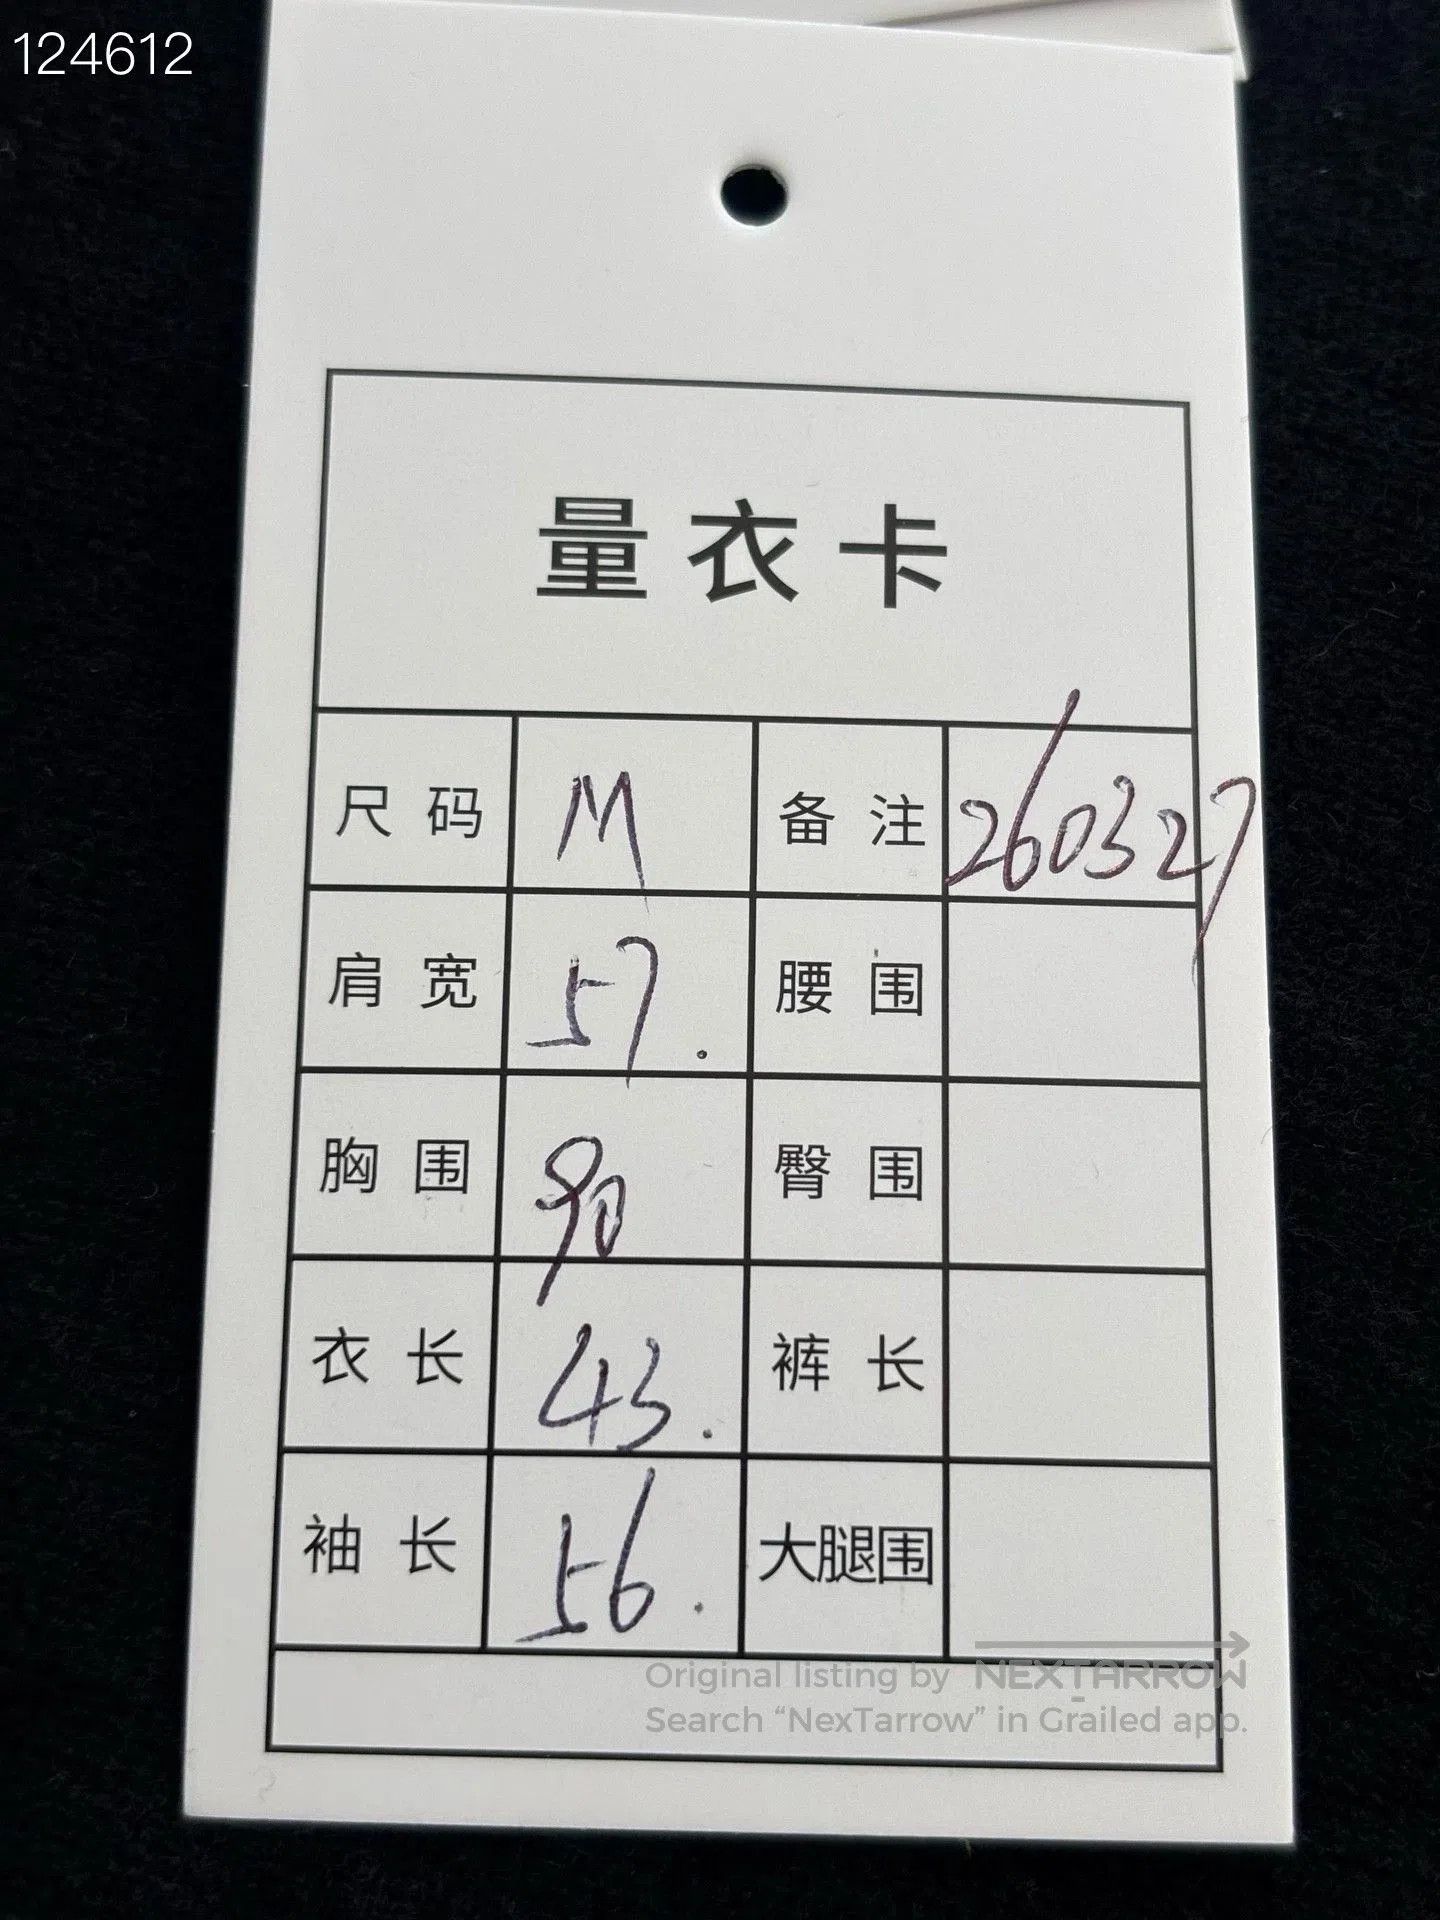 124612
量衣卡
尺码 M 备注 260327
肩宽 57. 腰围
胸围 90 臀围
衣长 43. 裤长
袖长 56. 大腿围
Original listing by NEXTARROW
Search “NexTarrow” in Grailed app.